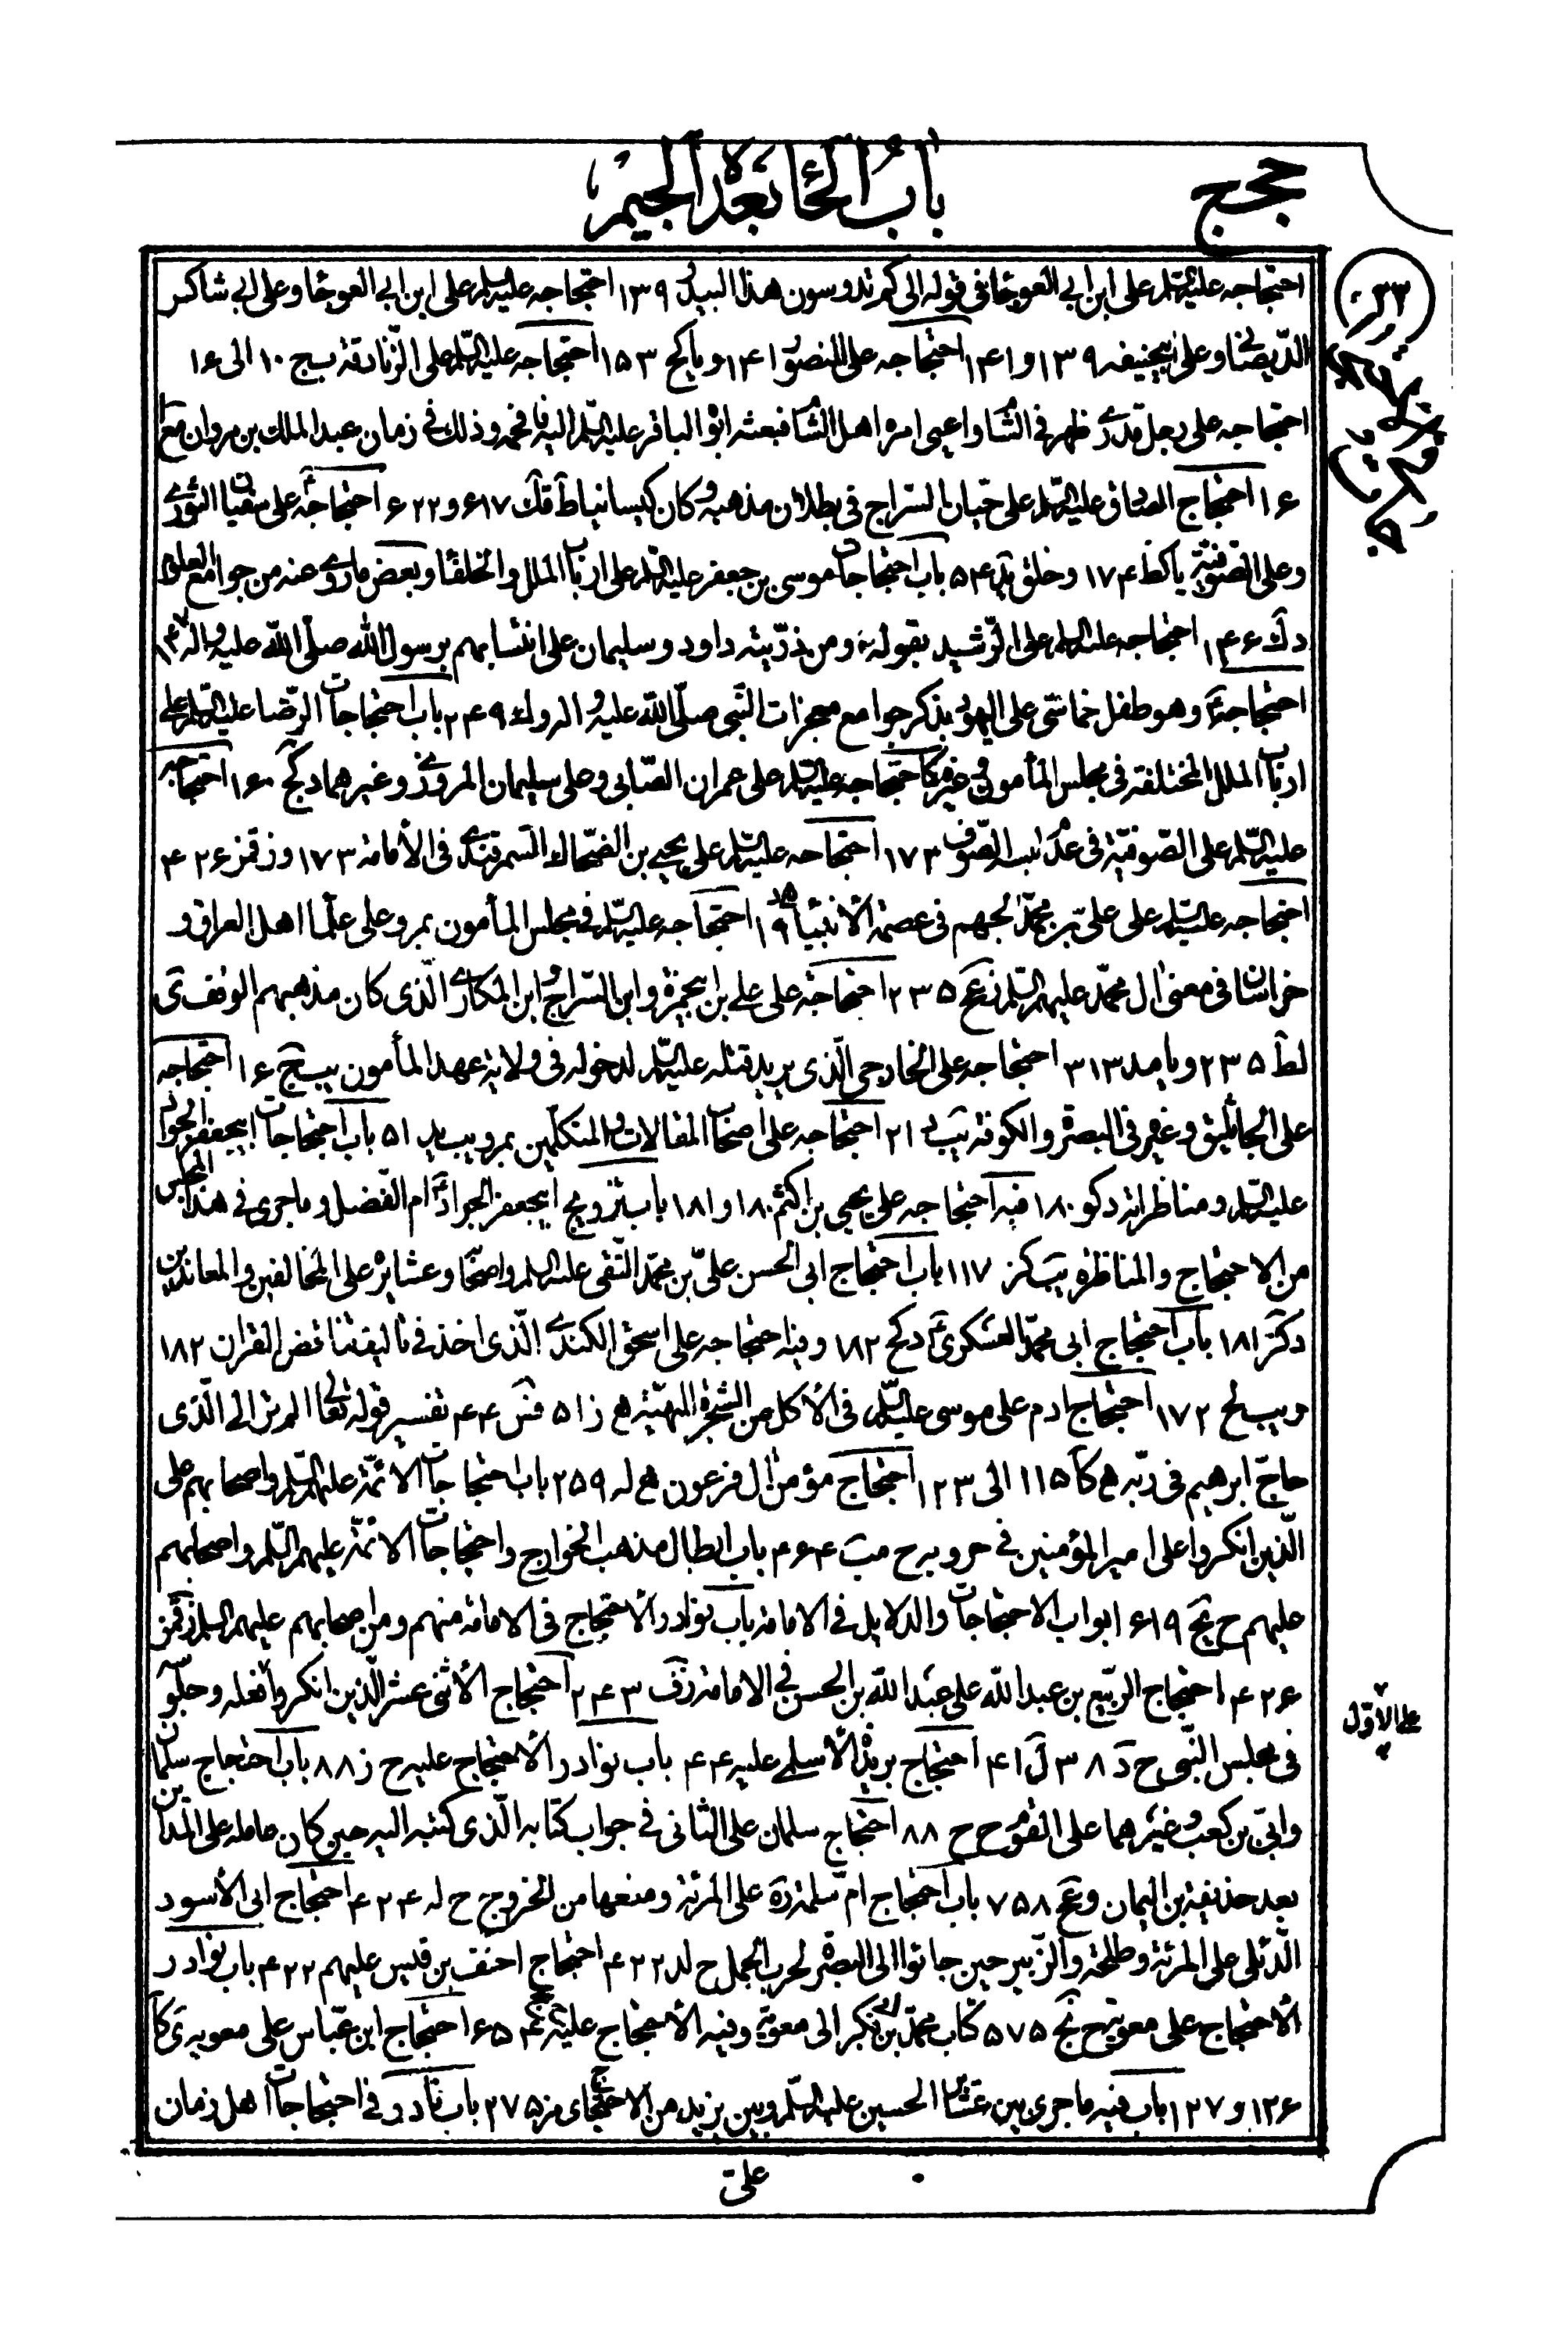 حجج
باب الحاء بعده الجيم
احتجاجه عليه السلم على ابن ابي العوجاء في قوله الى كم تدوسون هذا البيدر ١٣٩ احتجاجه عليه السلم على ابن ابي العوجا وعلى ابي شاكر
الديصاني وعلى ابيحنيفه ١٣٩ و١٤١ احتجاجه على المنصور ١٤١ و يا كح ١٥٣ احتجاجه عليه السلم على الزنادقة ب ج ١٠ الى ١٦
احتجاجه على رجل قدري ظهر في الشام واعيى امره اهل الشام فبعثه ابوه الباقر عليه السلم اليه فافحمه وذلك في زمان عبد الملك بن مروان مع ا
١٦ احتجاج الصادق عليه السلم على حيان السراج في بطلان مذهبه وكان كيسانيا ط قك ٦١٧ و٦٢٢ احتجاجه على سفيان الثوري
وعلى الصوفية يا كط ١٧٤ وخلق يد ٥٤ باب احتجاجات موسى بن جعفر عليه السلم على ارباب الملل والخلفاء وبعض ما روي عنه من جوامع العلوم
د ك ١٤٦ احتجاجه عليه السلم على الرشيد بقوله ومن ذريته داود وسليمان على انتسابهم برسول الله صلى الله عليه واله ١٤٧
احتجاجه وهو طفل خماسي على اليهود بذكر جوامع معجزات النبي صلى الله عليه واله و ك ٢٤٩ باب احتجاجات الرضا عليه السلم على
ارباب الملل المختلفة في مجلس المأمون وفي غيره كاحتجاجه عليه السلم على عمران الصابي وعلى سليمان المروزي وغيرهما د كج ١٦٠ احتجاجه
عليه السلم على الصوفية في عدم لبسه الصوف ١٧٣ احتجاجه عليه السلم على يحيى بن الضحاك السمرقندي في الامامة ١٧٣ و ز قمز ٤٢٦
احتجاجه عليه السلم على علي بن محمد الجهم في عصمة الأنبياء ١٩ احتجاجه عليه السلم في مجلس المأمون بمرو على علماء اهل العراق و
خراسان في معنى ال محمد عليهم السلم ز عج ٢٣٥ احتجاجه على علي بن ابيحمزة وابن السراج وابن المكاري الذي كان مذهبهم الوقف ى
لط ٢٣٥ و يا مد ٣١٣ احتجاجه على الخارجي الذي يريد قتله عليه السلم لدخوله في ولاية عهد المأمون يب ج ١٦ احتجاجه
على الجاثليق وغيره في البصرة والكوفة يب د ٢١ احتجاجه على اصحاب المقالات والمتكلمين بمرو يب يد ٥١ باب احتجاجات ابيجعفر الجواد
عليه السلم ومناظراته د كو ١٨٠ فيه احتجاجه على يحيى بن اكثم ١٨٠ و١٨١ باب تزويج ابيجعفر الجواد ام الفضل وما جرى في هذا المجلس
من الاحتجاج والمناظرة يب كز ١١٧ باب احتجاج ابي الحسن علي بن محمد النقي عليه السلم واصحابه وعشايره على المخالفين والمعاندين
د كز ١٨١ باب احتجاج ابي محمد العسكري د كح ١٨٢ وفيه احتجاجه على اسحق الكندي الذي اخذ في تاليف تناقض القران ١٨٢
ويب لح ١٧٢ احتجاج ادم على موسى عليه السلم في الأكل من الشجرة المنهية ه ز ٥١ فس ٤٤ تفسير قوله تعالى الم تر الى الذي
حاج ابرهيم في ربه ه كا ١١٥ الى ١٢٣ احتجاج مؤمن ال فرعون ه له ٢٥٩ باب احتجاجات الأئمة عليهم السلم واصحابهم على
الذين انكروا على امير المؤمنين في حروبه ح مب ٤٦٤ باب ابطال مذهب الخوارج واحتجاجات الائمة عليهم السلم واصحابهم
عليهم ح نج ٦١٩ ابواب الاحتجاجات والدلايل في الامامة باب نوادر الاحتجاج في الامامة منهم ومن اصحابهم عليهم السلم ز قمز
٤٢٦ احتجاج الربيع بن عبد الله على عبد الله بن الحسن في الامامة ز ق ٢٤٣ احتجاج الأثنى عشر الذين انكروا فعله وجلوسه
في مجلس النبي ح د ٣٨ ل ٤١ احتجاج بريدة الأسلمي عليه ٤٤ باب نوادر الأحتجاج عليه ح ز ٨٨ باب احتجاج سلمان
وابي بن كعب وغيرهما على القوم ح ح ٨٨ احتجاج سلمان على الثاني في جواب كتابه الذي كتبه اليه حين كان عامله على المداين
بعد حذيفة بن اليمان و عح ٧٥٨ باب احتجاج ام سلمة ره على المرئة ومنعها من الخروج ح له ٤٢٤ احتجاج ابي الأسود
الدئلي على المرئة وطلحة والزبير حين جاؤا الى البصرة لحرب الجمل ح لد ٤٢٢ احتجاج احنف بن قيس عليهم ٤٢٢ باب نوادر
الأحتجاج على معوية ح نج ٥٧٥ كتاب محمد بن ابي بكر الى معوية وفيه الأحتجاج عليه ٦٥٤ احتجاج ابن عباس على معويه ى كا
١٢٦ و١٢٧ باب فيه ما جرى بين عشاير الحسين عليه السلم وبين يزيد من الاحتجاج ى مز ٢٧٥ باب نادر في احتجاجات اهل زمان
على الأول
على